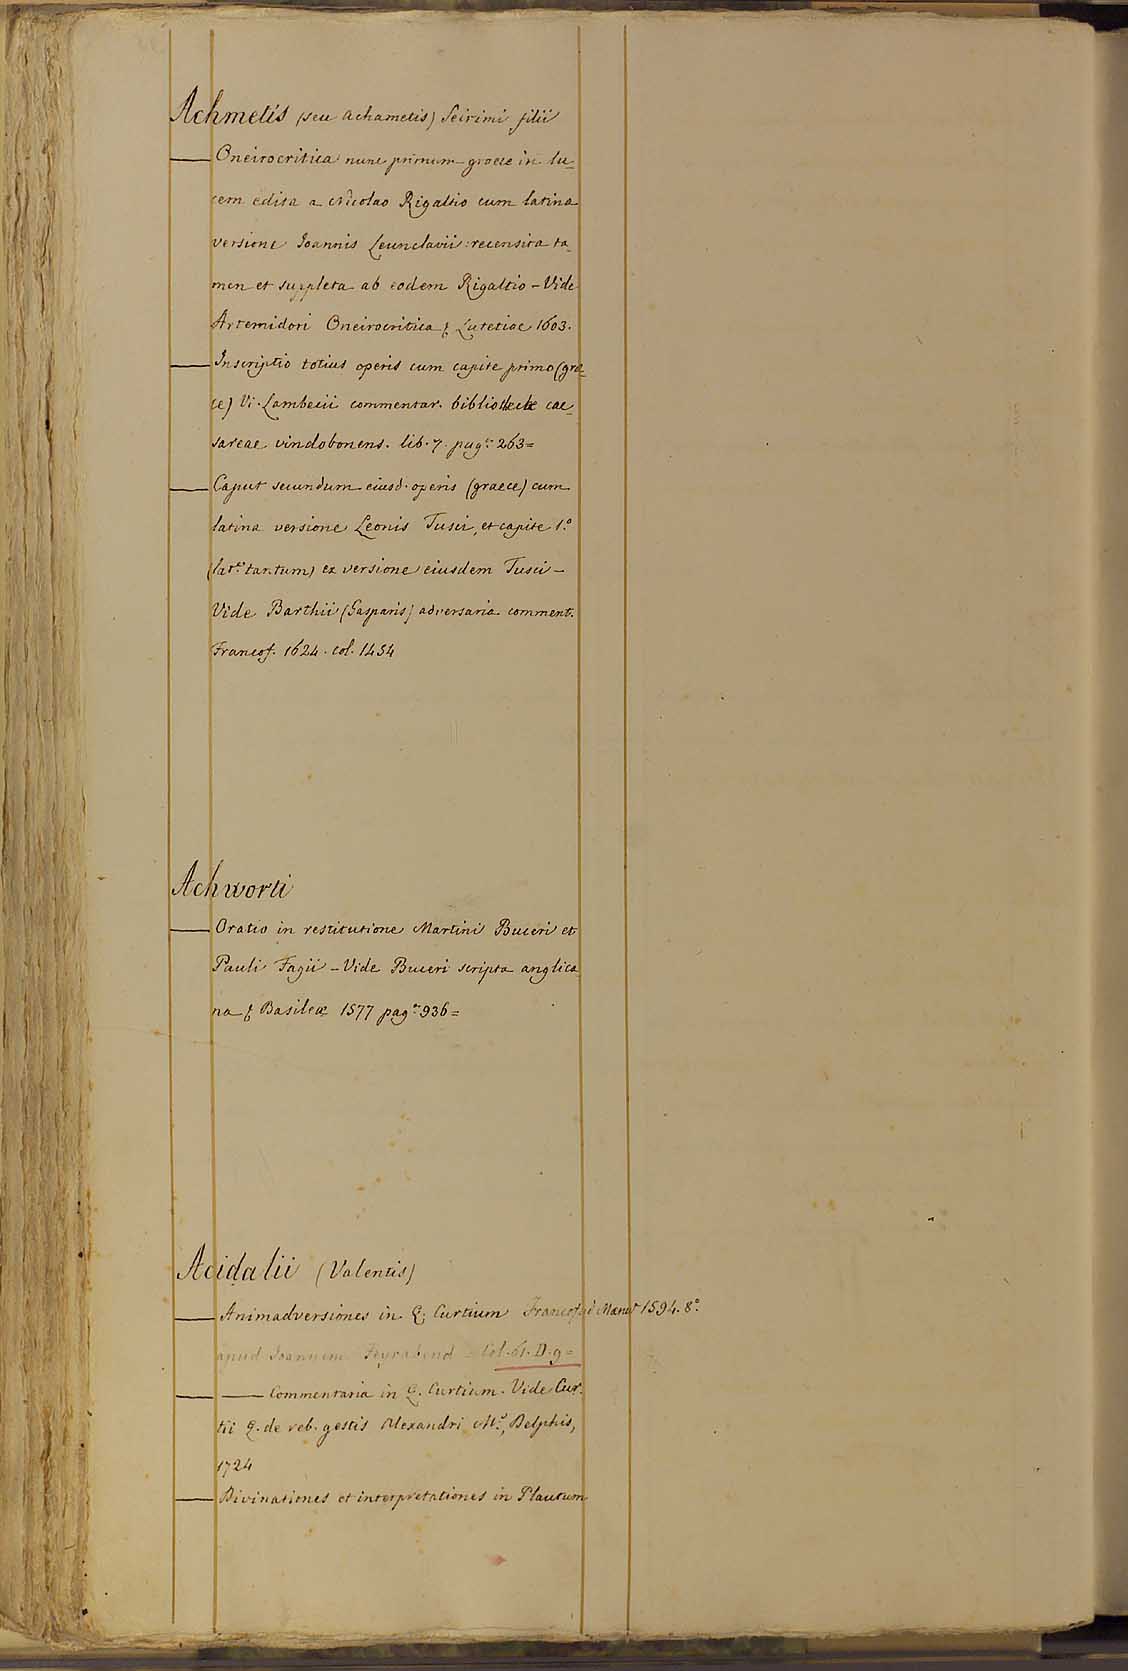 Achmetis (seu Achametis) Seirimi filii
— Oneirocritica nunc primum graece in lu-
cem edita a Nicolao Rigaltio cum latina
versione Joannis Leunclavii: recensita ta-
men et suppleta ab eodem Rigaltio - Vide
Artemidori Oneirocritica & Lutetiae 1603.
— Inscriptio totius operis cum capite primo (grae-
ce) Vi. Lambecii commentar. bibliothecae cae-
sareae vindobonens. lib. 7. pag. 263=
— Caput secundum eiusd. operis (graece) cum
latina versione Leonis Tusci, et capite 1.º
(lat.e tantum) ex versione eiusdem Tusci -
Vide Barthii (Gasparis) adversaria comment.
Francof. 1624. col. 1454
Achworti
— Oratio in restitutione Martini Buceri et
Pauli Fagii - Vide Buceri scripta anglica-
na & Basileae 1577 pag. 936=
Acidalii (Valentis)
— Animadversiones in Q. Curtium Francof. ad Maen. 1594. 8.º
apud Joannem Feyrabend = Col. 61. D. 9=
— — Commentaria in Q. Curtium. Vide Cur-
tii Q. de reb. gestis Alexandri M., Delphis,
1724
— Divinationes et interpretationes in Plautum